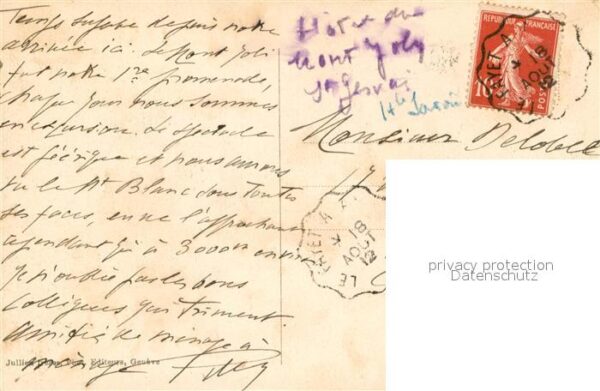 Temps superbe depuis notre
arrivée ici. Le Mont Joli
fut notre 1re promenade,
chaque jour nous sommes
en excursion. Le spectacle
est féérique et nous avons
vu le Mt Blanc sous toutes
ses faces, en ne l'approchant
cependant qu'à 3000m environ
Je n'oublie pas les bons
collègues qui triment
Amitiés de ménage à
ménage
Jullien Frères, Phot. Editeurs, Genève
Hôtel du
Mont Joly
St Gervais
Hte Savoie
REPUBLIQUE FRANÇAISE
10
POSTES
LE FAYET
18
AOUT
12
Monsieur Delobel
17
LE FAYET A
18
AOUT
12
privacy protection
Datenschutz